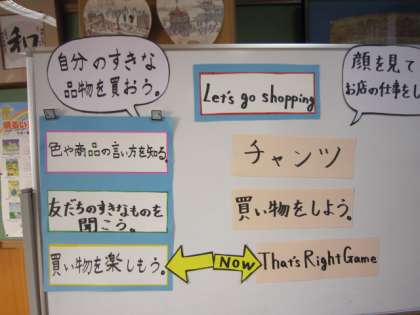 和
自分のすきな
品物を買おう。
Let's go shopping
顔を見て
お店の仕事をし
色や商品の言い方を知る。
チャンツ
友だちのすきなものを
聞こう。
買い物をしよう。
買い物を楽しもう。
NOW
That's Right Game